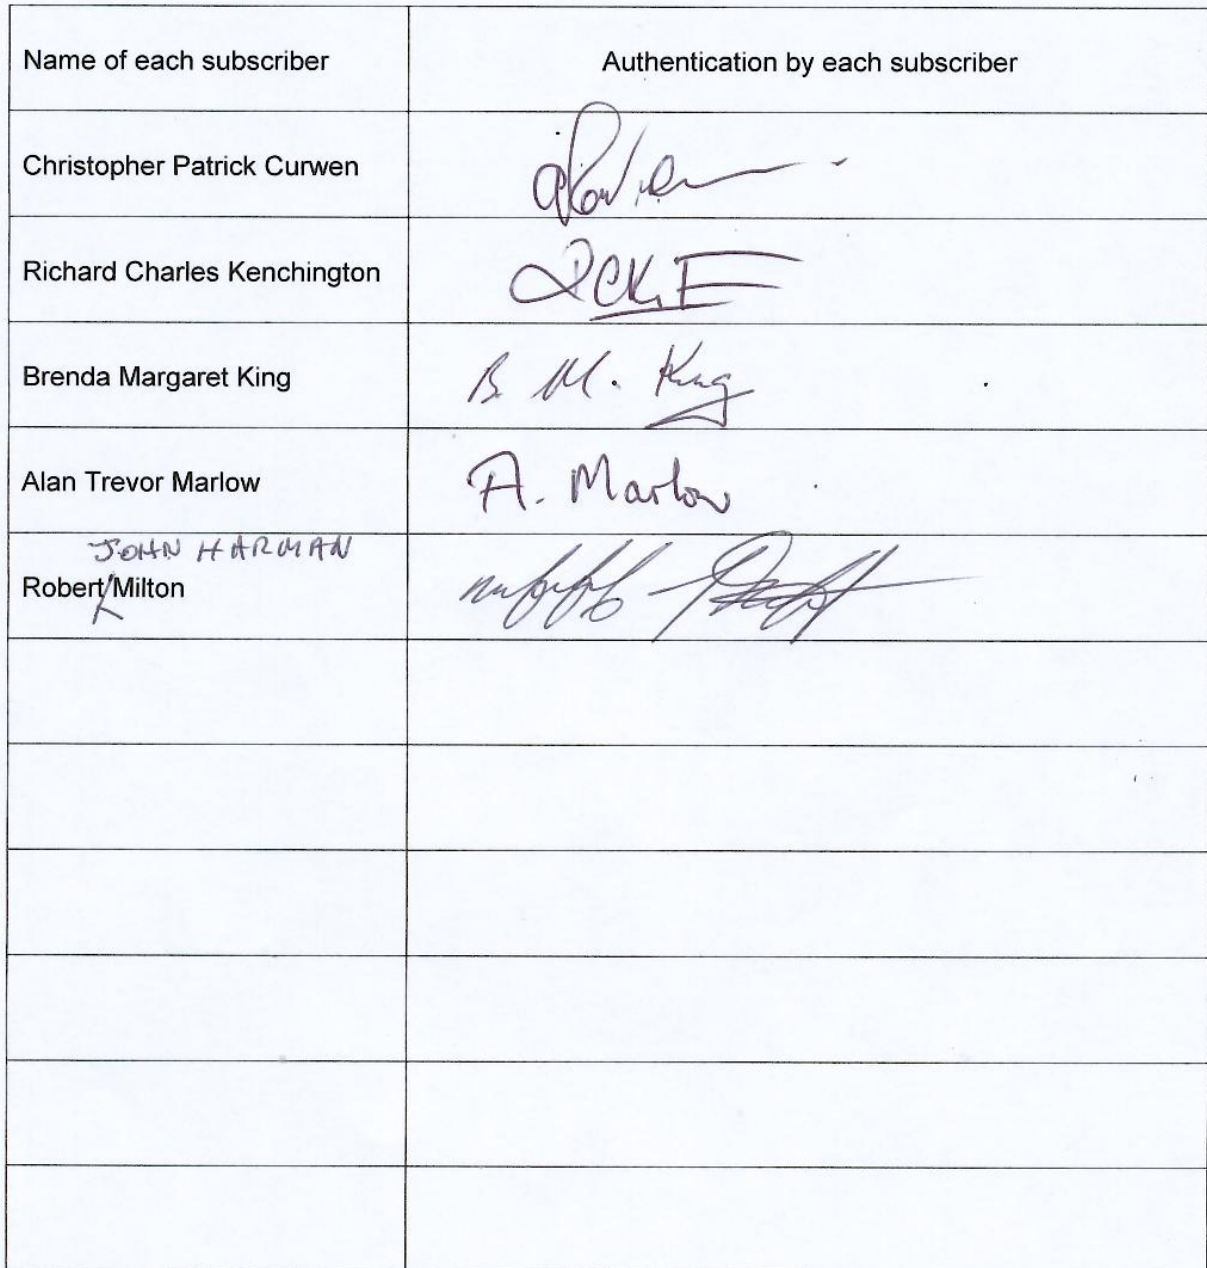 Name of each subscriber
Authentication by each subscriber
Christopher Patrick Curwen
Richard Charles Kenchington
RCK
Brenda Margaret King
B. M. King
Alan Trevor Marlow
A. Marlow
JOHN HARMAN
Robert Milton